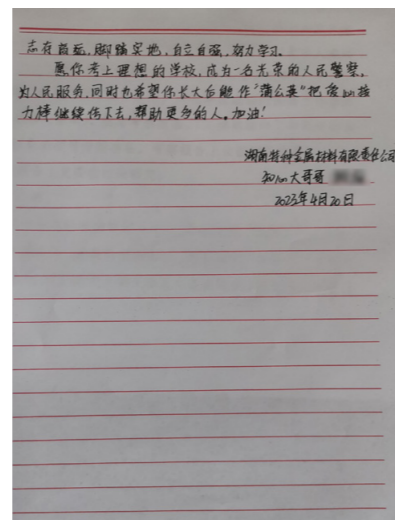 志存高远，脚踏实地，自立自强，努力学习。
愿你考上理想的学校，成为一名光荣的人民警察，
为人民服务，同时也希望你长大后能作“蒲公英”把爱心接
力棒继续传下去，帮助更多的人。加油！
湖南特种金属材料有限责任公司
大哥哥
2023年4月20日